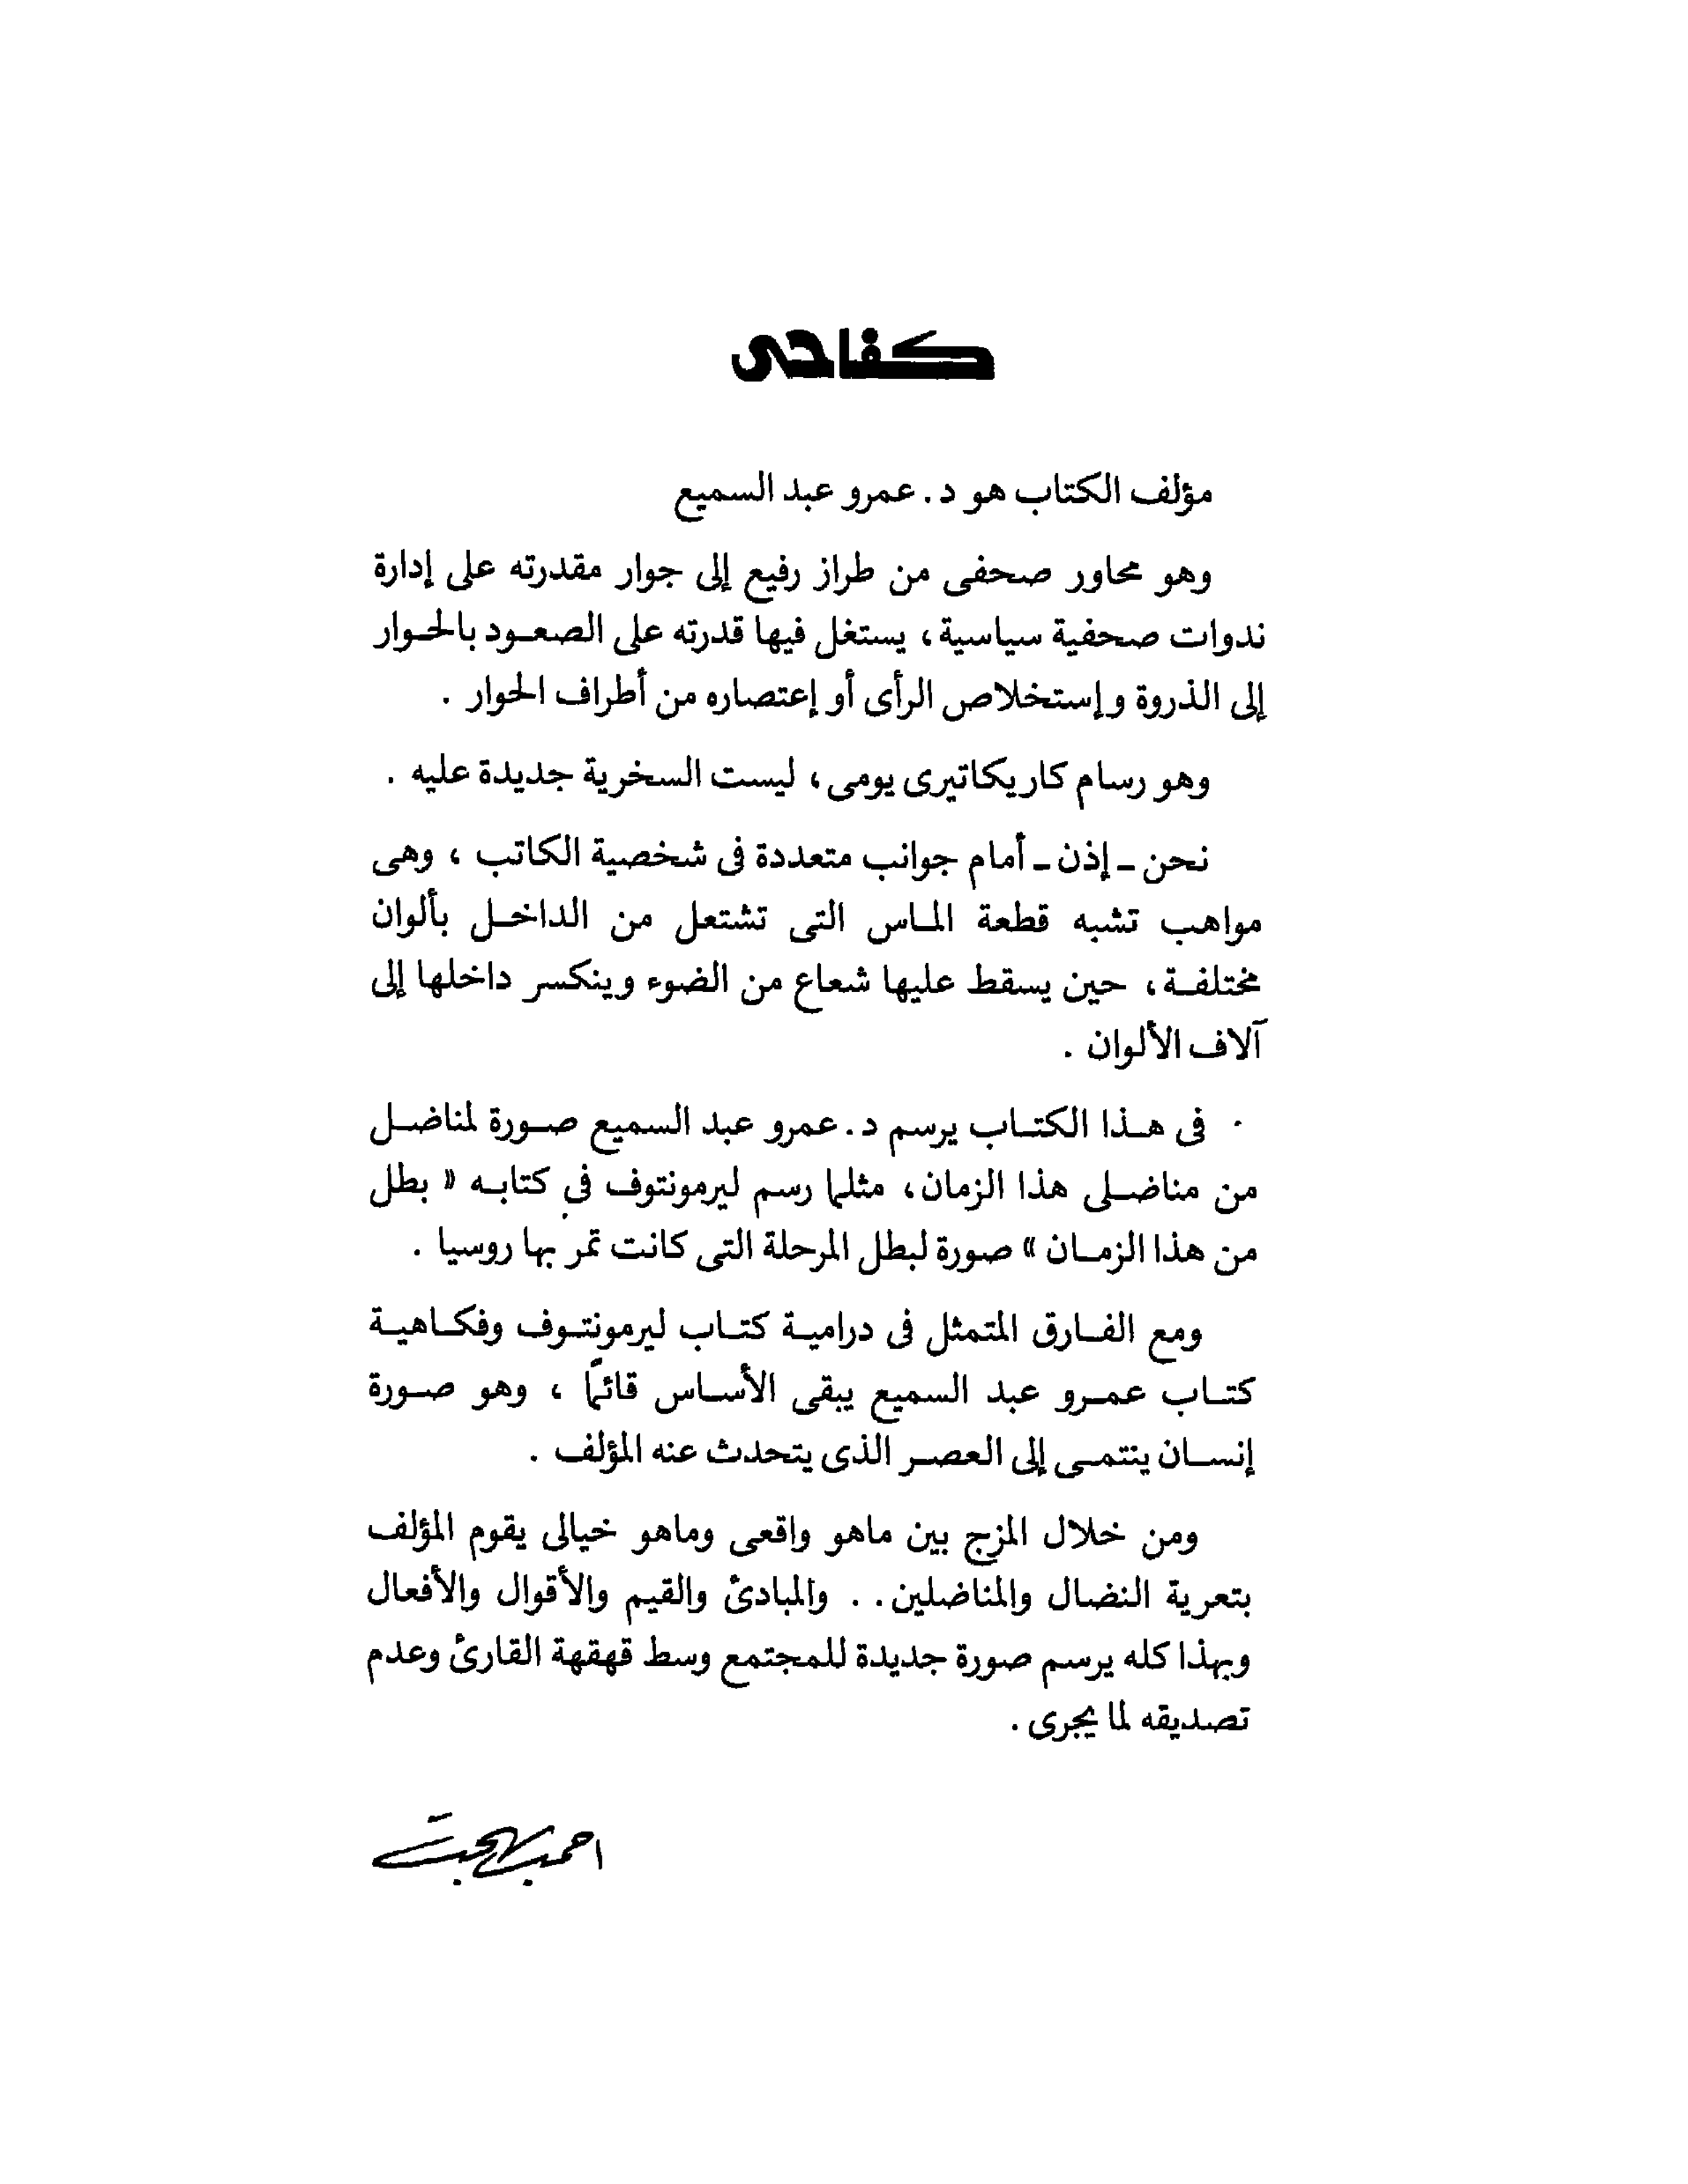 كفاحى
مؤلف الكتاب هو د. عمرو عبد السميع
وهو محاور صحفى من طراز رفيع إلى جوار مقدرته على إدارة
ندوات صحفية سياسية، يستغل فيها قدرته على الصعود بالحوار
إلى الذروة وإستخلاص الرأى أو إعتصاره من أطراف الحوار .
وهو رسام كاريكاتيرى يومى، ليست السخرية جديدة عليه .
نحن ـ إذن ـ أمام جوانب متعددة فى شخصية الكاتب ، وهى
مواهب تشبه قطعة الماس التى تشتعل من الداخل بألوان
مختلفة، حين يسقط عليها شعاع من الضوء وينكسر داخلها إلى
آلاف الألوان .
فى هذا الكتاب يرسم د. عمرو عبد السميع صورة لمناضل
من مناضلى هذا الزمان، مثلما رسم ليرمونتوف في كتابه « بطل
من هذا الزمان » صورة لبطل المرحلة التى كانت تمر بها روسيا .
ومع الفارق المتمثل فى درامية كتاب ليرمونتوف وفكاهية
كتاب عمرو عبد السميع يبقى الأساس قائمًا ، وهو صورة
إنسان ينتمى إلى العصر الذى يتحدث عنه المؤلف .
ومن خلال المزج بين ماهو واقعى وماهو خيالى يقوم المؤلف
بتعرية النضال والمناضلين . . والمبادئ والقيم والأقوال والأفعال
وبهذا كله يرسم صورة جديدة للمجتمع وسط قهقهة القارئ وعدم
تصديقه لما يجرى .
احمد بهجت